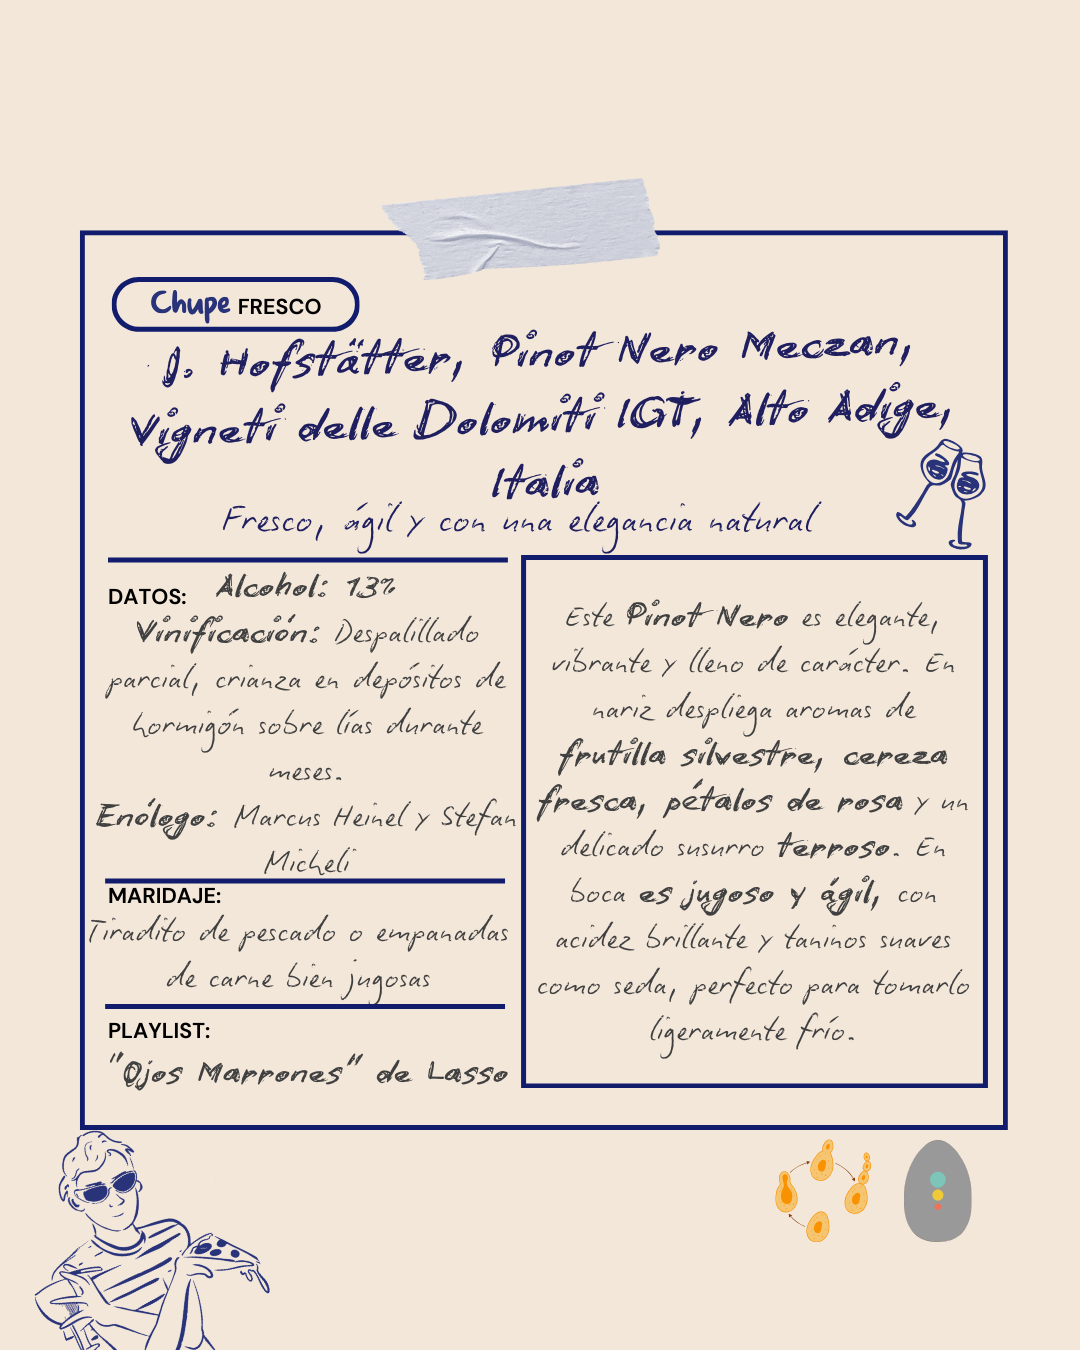 Chupe FRESCO
J. Hofstätter, Pinot Nero Meczan,
Vigneti delle Dolomiti IGT, Alto Adige,
Italia
Fresco, ágil y con una elegancia natural
DATOS: Alcohol: 13%
Vinificación: Despalillado
parcial, crianza en depósitos de
hormigón sobre lías durante
meses.
Enólogo: Marcus Heinel y Stefan
Micheli
MARIDAJE:
Tiradito de pescado o empanadas
de carne bien jugosas
PLAYLIST:
"Ojos Marrones" de Lasso
Este Pinot Nero es elegante,
vibrante y lleno de carácter. En
nariz despliega aromas de
frutilla silvestre, cereza
fresca, pétalos de rosa y un
delicado susurro terroso. En
boca es jugoso y ágil, con
acidez brillante y taninos suaves
como seda, perfecto para tomarlo
ligeramente frío.